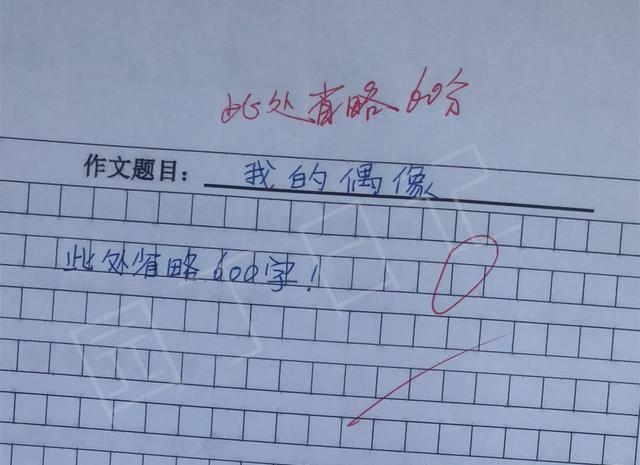 此处省略60分
作文题目：我的偶像
此处省略600字！
园丁日记